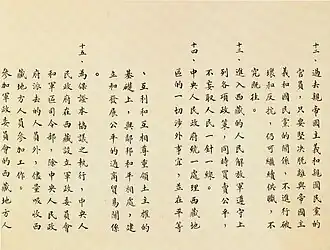 十二、過去親帝國主義和親國民黨的
官員，只要堅決脫離與帝國主
義和國民黨的關係，不進行破
壞和反抗，仍可繼續供職，不
究既往。
十三、進入西藏的人民解放軍遵守上
列各項政策，同時買賣公平，
不妄取人民一針一線。
十四、中央人民政府統一處理西藏地
區的一切涉外事宜，並在平等
、互利和互相尊重領土主權的
基礎上，與鄰邦和平相處，建
立和發展公平的通商貿易關係
。
十五、為保證本協議之執行，中央人
民政府在西藏設立軍政委員會
和軍區司令部，除中央人民政
府派去的人員外，儘量吸收西
藏地方人員參加工作。
參加軍政委員會的西藏地方人